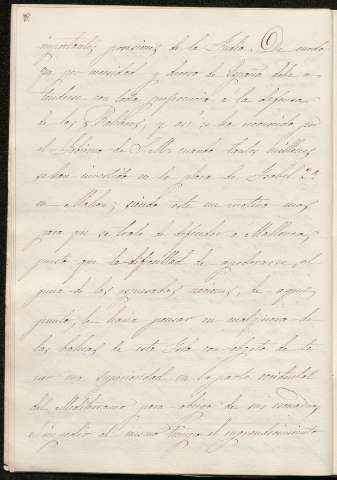 importantes posiciones de la Isla. De modo
que por necesidad y decoro de España debe a-
tenderse con toda preferencia á la defensa
de las Baleares, y así se ha reconocido por
el Gobierno de S. M. cuando tantos millones
se han invertido en la plaza de Isabel 2ª
en Mahon; siendo este un motivo mas
para que se trate de defender a Mallorca,
puesto que la dificultad de apoderarse, el
que de las espresadas naciones, de aquel
punto, le haria pensar en
las bahias de esta Isla con objeto de te-
ner una superioridad en la parte occidental
del Mediterraneo para abrigo de sus escuadras,
é impedir al mismo tiempo el engrandecimiento